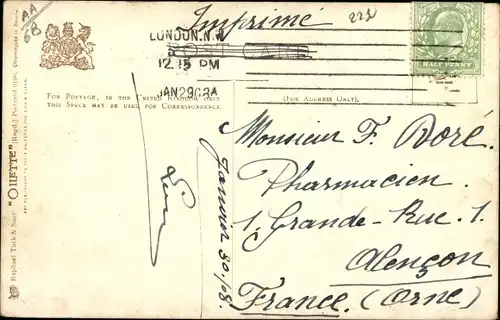 AA
68
Imprimé
223
LONDON. N.W
12.15 PM
JAN 29 08A
POST CARD
HALF PENNY
FOR POSTAGE, IN THE UNITED KINGDOM ONLY
THIS SPACE MAY BE USED FOR CORRESPONDENCE.
(FOR ADDRESS ONLY).
Raphael Tuck & Sons' "OILETTE" [Regd.] Postcard
Monsieur F. Doré.
Pharmacien.
1. Grande-Rue. 1.
Alençon
France. (Orne)
Janvier 30/08.